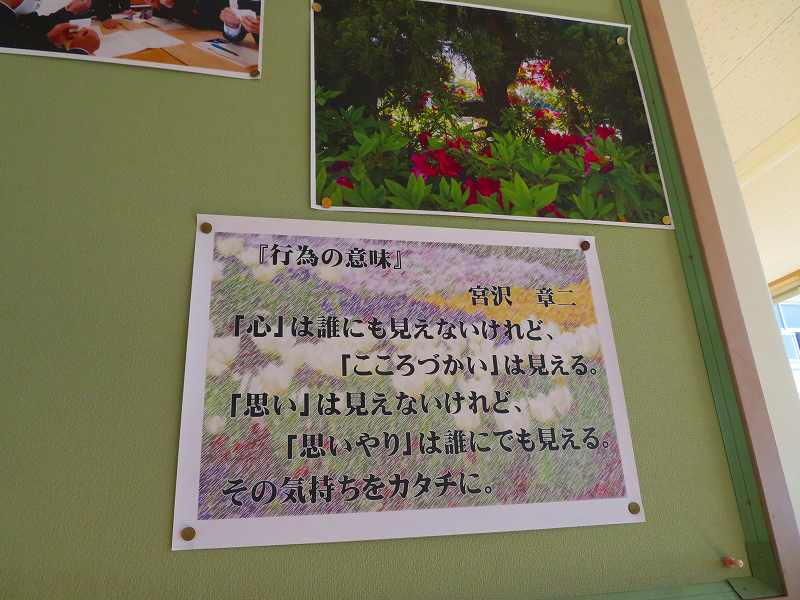 『行為の意味』
宮沢　章二
「心」は誰にも見えないけれど、
「こころづかい」は見える。
「思い」は見えないけれど、
「思いやり」は誰にでも見える。
その気持ちをカタチに。